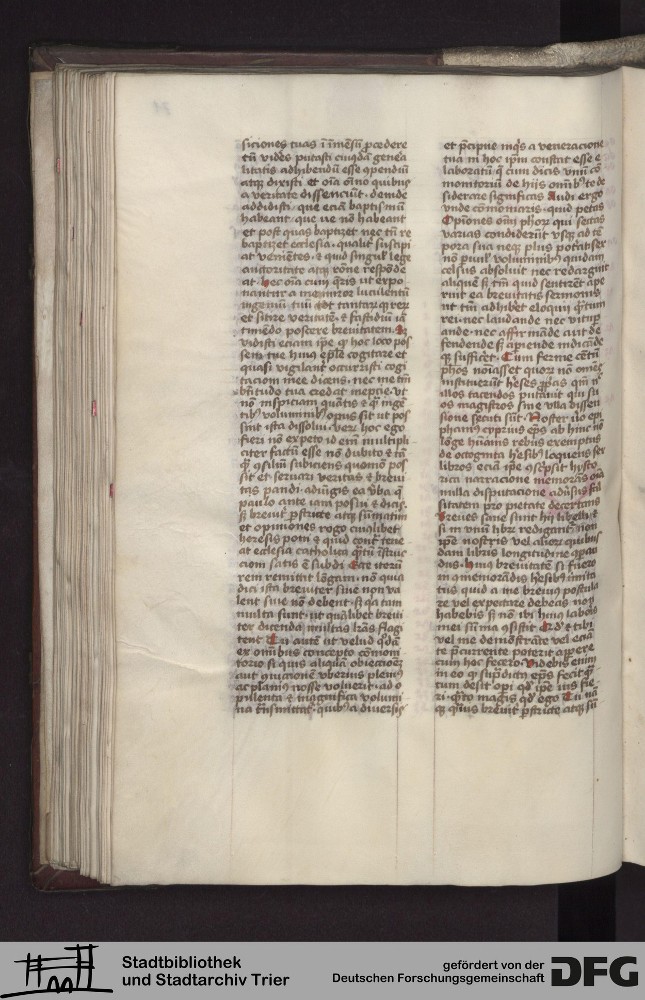 siciones tuas i imēsū ꝓcedere
tū vides putasti cuiꝰdā gen̄a
litatis adhibendū esse ꝯpendiū
atqꝫ dixisti et oīa oīno quibus
a veritate dissenciūt · deinde
addidisti · que eciā baptismū
habeant · que ue nō habeant
et post quas baptizet nec tn̄ re
baptizet ecclesia · qualit͛ suscipi
at venientes · ⁊ quid singul͛ lege
auctoritate atqꝫ rōne respōde
at · hec oīa cum q̄ris ut expo
nantur a me miror luculentū
ingeniū tuū
et sitire veritatē · ⁊ fastidiū iā
timēdo poscere breuitatem
vidisti eciam ip̄e q̄ hoc loco pos
sem tue huiꝰ ep̄le cogitare et
quasi vigilant͛ occurristi cogi
tacioni mee dicens · nec me tm̄
bt̄itudo tua credat inepcie · vt
nō inspiciam quātis ⁊ q̄ inge
tibꝰ voluminibꝰ opus sit ut pos
sint ista dissolui · veꝝ hoc ego
fieri nō expeto id em̄ multipli
citer factū esse nō dubito ⁊ tā
q̄ ꝯsiliū subiciens quomō pos
sit et seruari veritas ⁊ breui
tas pandi · adiūgis ea v̄ba q̄
paulo ante iam posui ⁊ dicis
si breuit͛ ꝑstricte atqꝫ sūmatim
et opiniones rogo cuiꝰlibet
heresis poni ⁊ quid cont͛ tene
at ecclesia catholica q̄tū īstruc
cioni satis ē subdi Ecce iterū
rem remittit lōgam · nō quia
dici ista breuiter siue non va
lent siue nō debent · sꝫ qa tam
multa sunt · ut quālibet breui
ter dicenda multas lr̄as flagi
tent Tu autē ut velud q̄dā
ex omībus concepto cōmoni
torio si quis aliquā obiectioneꝫ
aut ꝯuictionē vberius pleniꝰ
ac planiꝰ nosse voluerit · ad o
pulenta ⁊ magnifica volumi
na tn̄smittat͛ · quibꝰ a diuersis
et p̄cipue inqͥs a veneracione
tua in hoc ip̄m constat esse e
laboratū q̄ cum dicis vnū cō
monitoriū de hijs omībꝰ te de
siderare significas Audi ergo
vnde cōmonearis · quid petas
Opiniones oīm phoꝝ qui sectas
varias condiderūt vsqꝫ ad tē
pora sua neqꝫ plus potātꝰ
nō pauꝉ voluminibꝰ quidam
celsus absoluit nec redarguit
aliquē sꝫ tm̄ quid sentirēt ape
ruit ea breuitatis sermonis
ut tm̄ adhibet eloquii q̄tum
rei · nec laudande nec vitup̄
ande · nec affirmāde aut de
fendende sꝫ apiende indicāde
qꝫ sufficet · Cum ferme cētū
phōs noīasset quoꝝ nō omēs
instituerūt heses ꝓp̄as qm̄ n̄
illos tacendos putauit qui su
os magistros sine vlla dissen
sione secuti sūt · Noster uo epi
phaniꝰ cyprius ep̄s ab hinc nō
lōge humānis rebus exemptus
de octoginta hesibꝰ loquens sex
libros eciā ip̄e ꝯsc̄psit hysto
rica narracione memorās oīa
nulla disputacione adūsus fal
sitatem pro pietate decertans
Breues sane sunt hij libelli · ⁊
si in vnū libꝝ redigant͛ non
ip̄e nostris vel alioꝝ quibus
dam libris longitudine ꝯꝑan
dus · huiꝰ breuitatē si fuero
in ꝯmemorādis hesibꝰ imita
tus quid a me breuius postula
re vel expectare debeas nō
habebis sꝫ nō ibi huiꝰ laboris
mei sūma ꝯsistit · Qd̓ ⁊ tibi
vel me demōstrāte vel eciā
te p̄currente poterit apꝑere
cum hoc fecero Videbis enim
in eo q̄ sup̄dictꝰ ep̄s fecit q̄
tum desit opi qd̓ ip̄e uis fie
ri · q̄nto magis qd̓ ego Tu nā
qꝫ q̄uis breuit͛ ꝑstricte atqꝫ sū
Stadtbibliothek
und Stadtarchiv Trier
gefördert von der
Deutschen Forschungsgemeinschaft
DFG